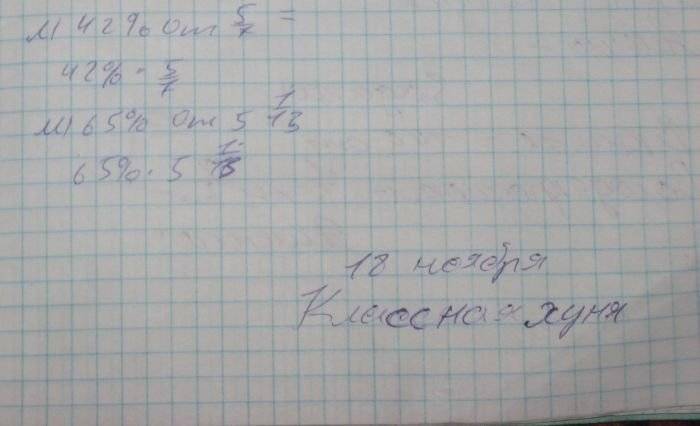 м) 42% от 5/7 =
42% · 5/7
м) 65% от 5 1/13
65% · 5 1/13
18 ноября
Классная хуня